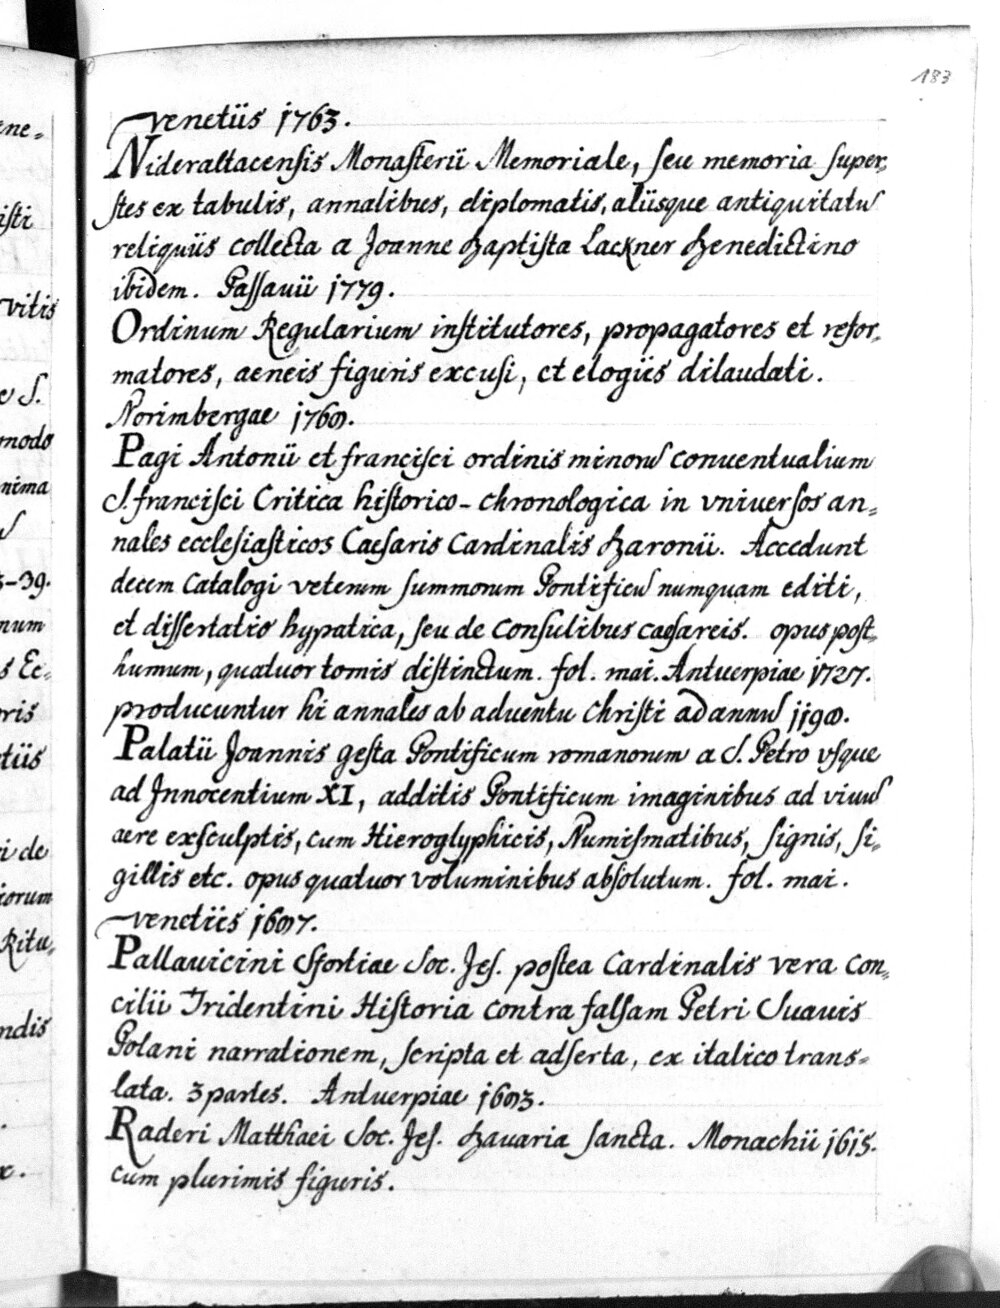 183
venetiis 1763.
Nideraltacensis Monasterii Memoriale, seu memoria super-
stes ex tabulis, annalibus, diplomatis, aliisque antiquitatu
reliquiis collecta a Joanne Baptista Lackner Benedictino
ibidem. Passavii 1779.
Ordinum Regularium institutores, propagatores et refor-
matores, aeneis figuris excusi, et elogiis dilaudati.
Norimbergae
Pagi Antonii et francisci ordinis minoru conventualium
S. francisci Critica historico-chronologica in vniuersos an-
nales ecclesiasticos Caesaris Cardinalis Baronii. Accedunt
decem Catalogi veterum summorum Pontificu numquam editi,
et dissertatio hypatica, seu de Consulibus caesareis. opus post-
humum, quatuor tomis distinctum. fol. mai. Antuerpiae 1727.
producuntur hi annales ab aduentu Christi ad annu
Palatii Joannis gesta Pontificum romanorum a S. Petro vsque
ad Innocentium XI, additis Pontificum imaginibus ad viuu
aere exsculptis, cum Hieroglyphicis, Numismatibus, signis, si-
gillis etc. opus quatuor voluminibus absolutum. fol. mai.
venetiis
Pallauicini Sfortiae Soc. Jes. postea Cardinalis vera Con-
cilii Tridentini Historia contra falsam Petri Suauis
Polani narrationem, scripta et adserta, ex italico trans-
lata. 3 partes. Antuerpiae
Raderi Matthaei Soc. Jes. Bauaria sancta. Monachii 1615.
cum plurimis figuris.